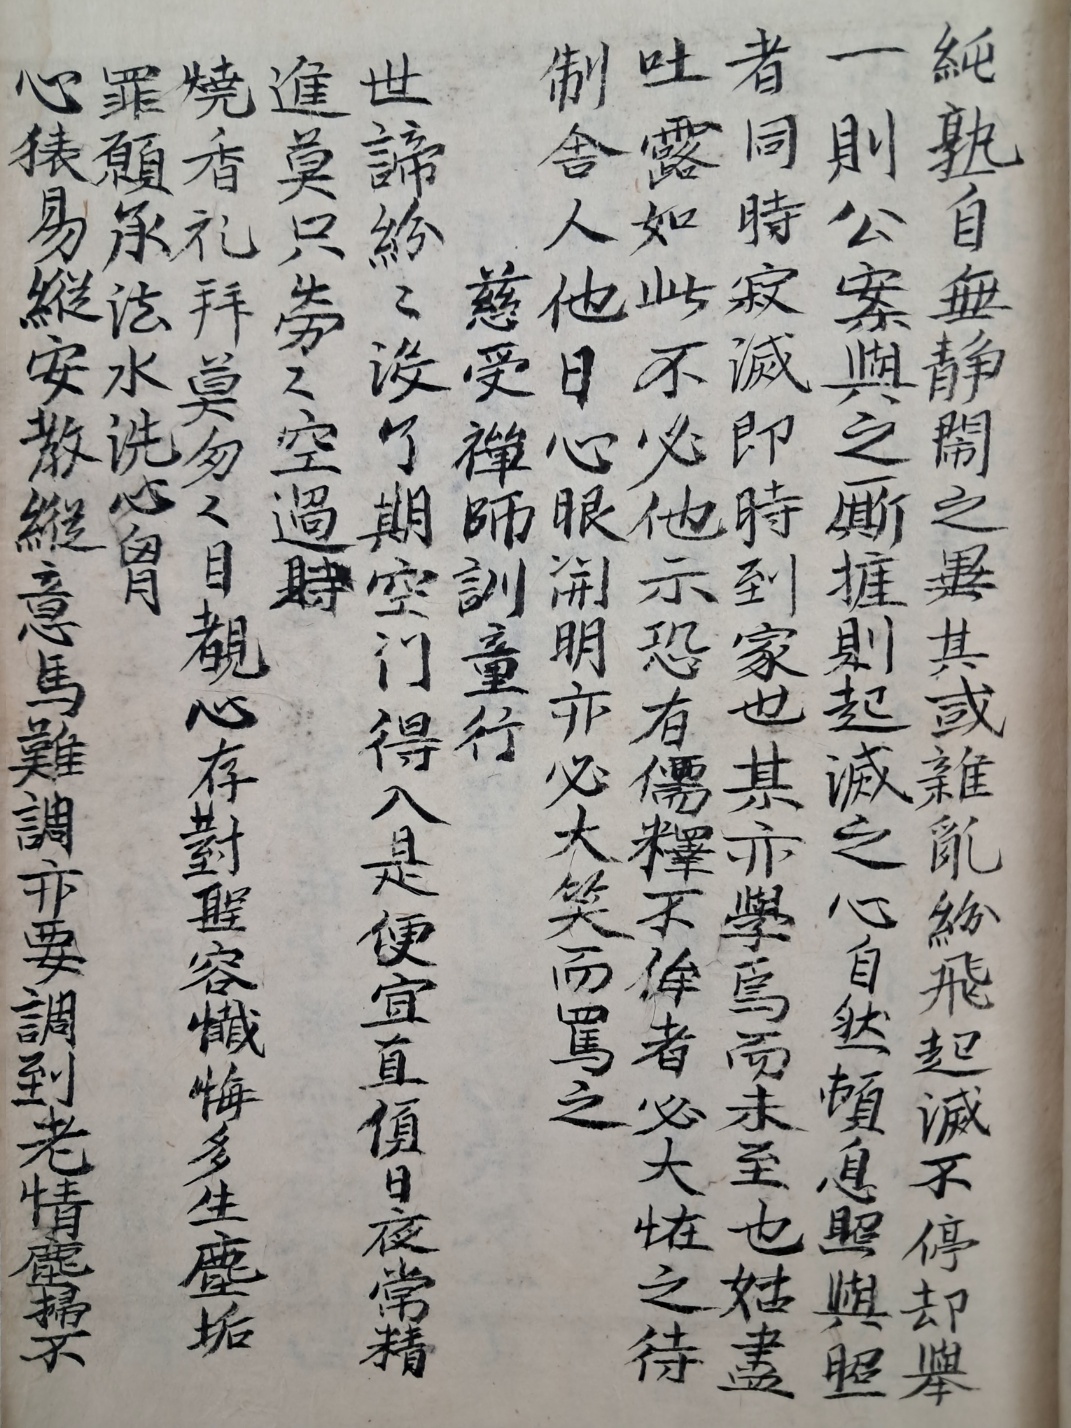 純熟自無静閙之異其或雜乱紛飛起滅不停却舉
一則公案與之厮捱則起滅之心自然頓息照與照
者同時寂滅即時到家也某亦學焉而未至也姑盡
吐露如此不必他示恐有儒釋不侔者必大恠之待
制舍人他日心眼開明亦必大笑而罵之
慈受禪師訓童行
世諦紛〻没了期空门得入是便宜直須日夜常精
進莫只劳〻空過時
燒香礼拜莫匆〻目覩心存對聖容懺悔多生塵垢
罪願承法水洗心胷
心猿易縱安教縱意馬難調亦要調到老情塵掃不